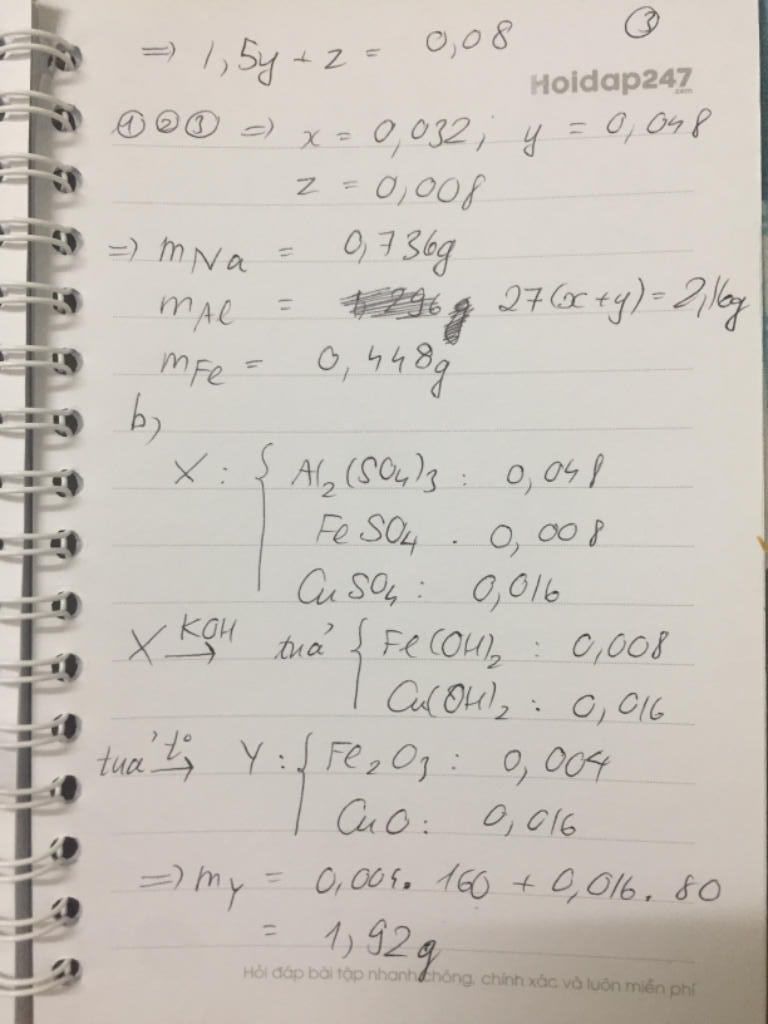 ③
=> 1,5y + z = 0,08
Hoidap247
.com
① ② ③ => x = 0,032; y = 0,048
z = 0,008
=> mNa = 0,736g
mAl = 27(x+y) = 2,16g
mFe = 0,448g
b)
X : { Al2(SO4)3 : 0,048
FeSO4 . 0,008
CuSO4 : 0,016
X KOH → tuả { Fe(OH)2 : 0,008
Cu(OH)2 : 0,016
tuả t° → Y : { Fe2O3 : 0,004
CuO : 0,016
=> mY = 0,004. 160 + 0,016. 80
= 1,92g
Hỏi đáp bài tập nhanh chóng, chính xác và luôn miễn phí